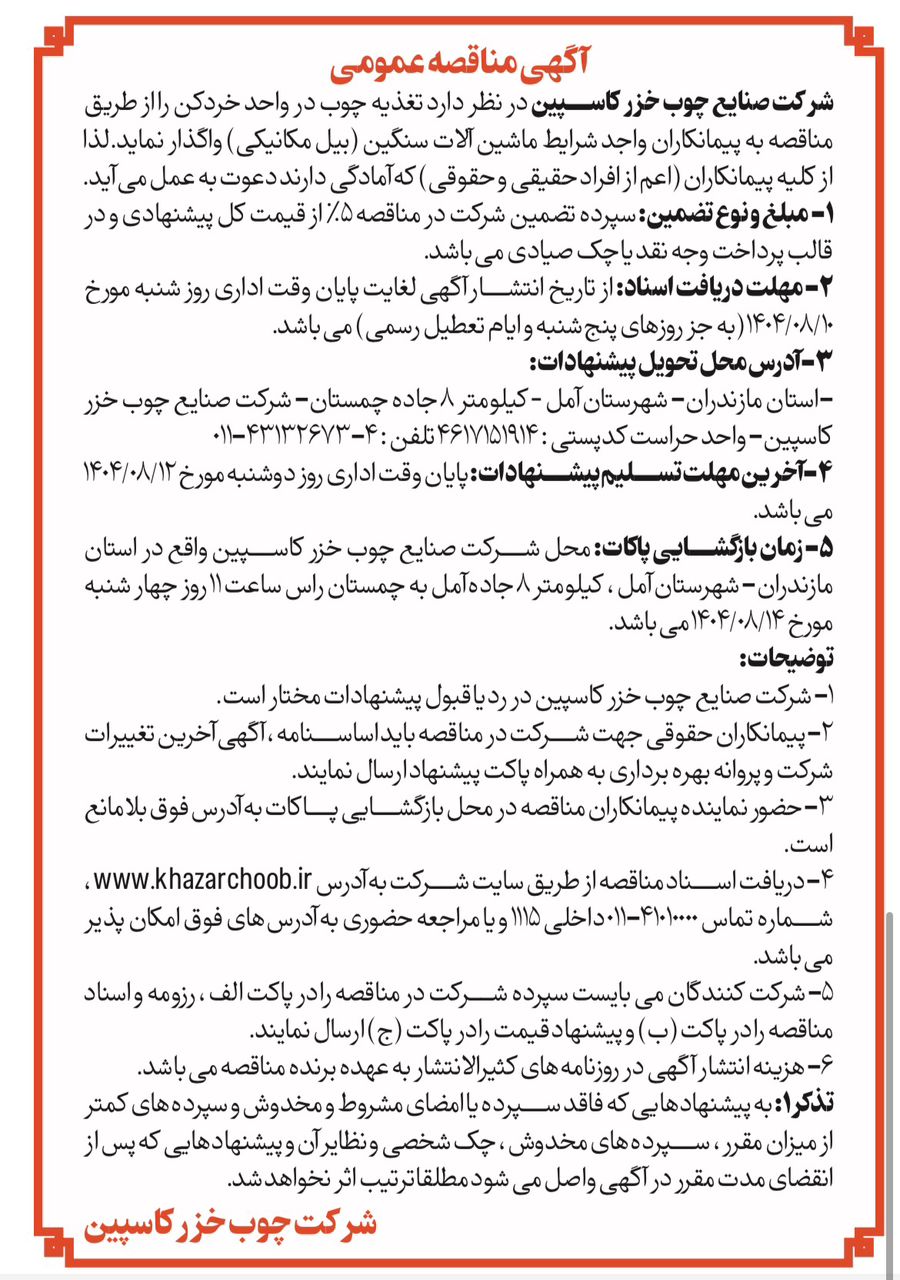 آگهی مناقصه عمومی
شرکت صنایع چوب خزر کاسپین در نظر دارد تغذیه چوب در واحد خردکن را از طریق
مناقصه به پیمانکاران واجد شرایط ماشین آلات سنگین (بیل مکانیکی) واگذار نماید. لذا
از کلیه پیمانکاران (اعم از افراد حقیقی و حقوقی) که آمادگی دارند دعوت به عمل می آید.
۱- مبلغ و نوع تضمین: سپرده تضمین شرکت در مناقصه ۵٪ از قیمت کل پیشنهادی و در
قالب پرداخت وجه نقد یا چک صیادی می باشد.
۲- مهلت دریافت اسناد: از تاریخ انتشار آگهی لغایت پایان وقت اداری روز شنبه مورخ
۱۴۰۴/۰۸/۱۰ (به جز روزهای پنج شنبه و ایام تعطیل رسمی) می باشد.
۳- آدرس محل تحویل پیشنهادات:
-استان مازندران- شهرستان آمل - کیلومتر ۸ جاده چمستان- شرکت صنایع چوب خزر
کاسپین- واحد حراست کدپستی : ۴۶۱۷۱۵۱۹۱۴ تلفن : ۴-۴۳۱۳۲۶۷۳-۰۱۱
۴-آخرین مهلت تسلیم پیشنهادات: پایان وقت اداری روز دوشنبه مورخ ۱۴۰۴/۰۸/۱۲
می باشد.
۵- زمان بازگشایی پاکات: محل شرکت صنایع چوب خزر کاسپین واقع در استان
مازندران - شهرستان آمل ، کیلومتر ۸ جاده آمل به چمستان راس ساعت ۱۱ روز چهار شنبه
مورخ ۱۴۰۴/۰۸/۱۴ می باشد.
توضیحات:
۱- شرکت صنایع چوب خزر کاسپین در رد یا قبول پیشنهادات مختار است.
۲- پیمانکاران حقوقی جهت شرکت در مناقصه باید اساسنامه ، آگهی آخرین تغییرات
شرکت و پروانه بهره برداری به همراه پاکت پیشنهاد ارسال نمایند.
۳- حضور نماینده پیمانکاران مناقصه در محل بازگشایی پاکات به آدرس فوق بلامانع
است.
۴- دریافت اسناد مناقصه از طریق سایت شرکت به آدرس www.khazarchoob.ir ،
شماره تماس ۴۱۰۱۰۰۰۰-۰۱۱ داخلی ۱۱۱۵ و یا مراجعه حضوری به آدرس های فوق امکان پذیر
می باشد.
۵- شرکت کنندگان می بایست سپرده شرکت در مناقصه را در پاکت الف ، رزومه و اسناد
مناقصه را در پاکت (ب) و پیشنهاد قیمت را در پاکت (ج) ارسال نمایند.
۶- هزینه انتشار آگهی در روزنامه های کثیرالانتشار به عهده برنده مناقصه می باشد.
تذکر۱: به پیشنهادهایی که فاقد سپرده یا امضای مشروط و مخدوش و سپرده های کمتر
از میزان مقرر ، سپرده های مخدوش ، چک شخصی و نظایر آن و پیشنهادهایی که پس از
انقضای مدت مقرر در آگهی واصل می شود مطلقا ترتیب اثر نخواهد شد.
شرکت چوب خزر کاسپین